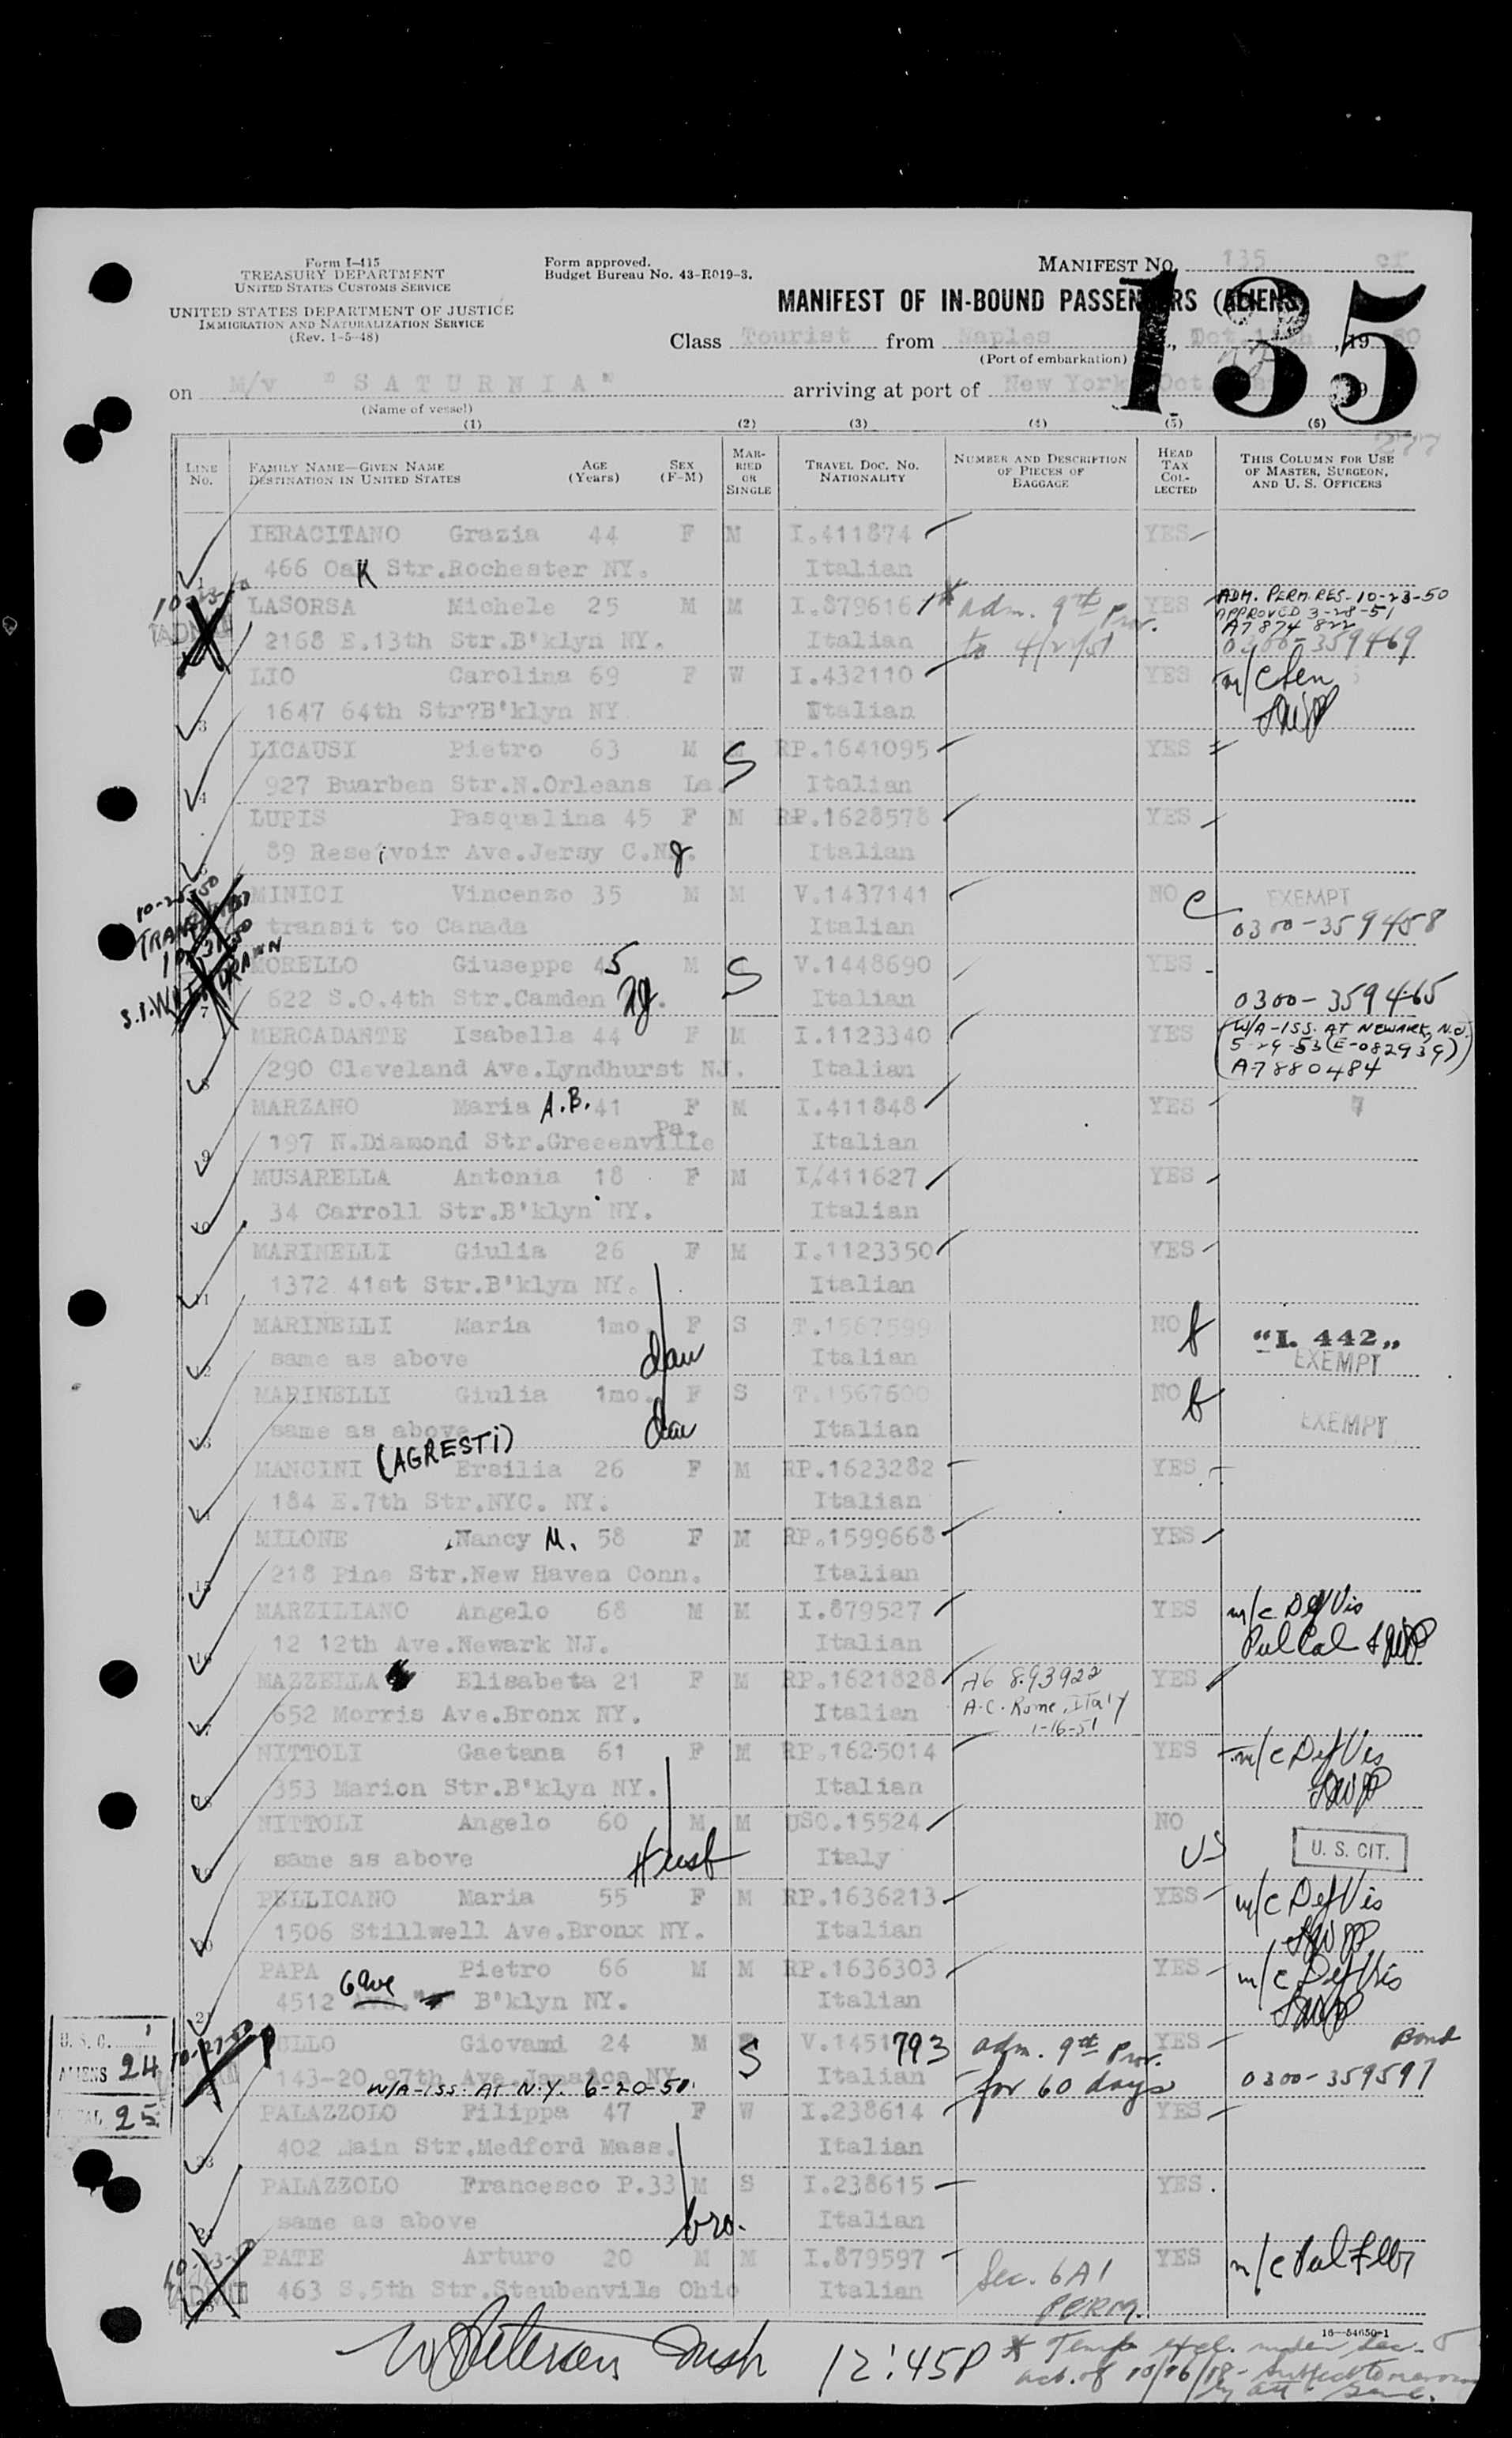 Form I-415
TREASURY DEPARTMENT
UNITED STATES CUSTOMS SERVICE
UNITED STATES DEPARTMENT OF JUSTICE
IMMIGRATION AND NATURALIZATION SERVICE
(Rev. 1-5-48)
Form approved.
Budget Bureau No. 43-R019-3.
MANIFEST NO. 135 of
135
MANIFEST OF IN-BOUND PASSENGERS (ALIENS)
Class Tourist from Naples, Oct. , 1950
(Port of embarkation)
on M/v "SATURNIA" arriving at port of New York Oct.
(Name of vessel)
(1) (2) (3) (4) (5) (6)
277
LINE No. FAMILY NAME—GIVEN NAME DESTINATION IN UNITED STATES AGE (Years) SEX (F-M) MARRIED OR SINGLE TRAVEL DOC. NO. NATIONALITY NUMBER AND DESCRIPTION OF PIECES OF BAGGAGE HEAD TAX COLLECTED THIS COLUMN FOR USE OF MASTER, SURGEON, AND U. S. OFFICERS
IERACITANO Grazia 44 F M I.411874 YES
1 466 Oak Str.Rochester NY. Italian
LASORSA Michele 25 M M I.879616 * adm. 9th Prov. YES ADM. PERM. RES. 10-23-50
APPROVED 3-28-51
A7874 822
2168 E.13th Str.B'klyn NY. Italian to 4/22/51 0300-359469
LIO Carolina 69 F W I.432110 YES m/c Sen
3 1647 64th Str?B'klyn NY Italian
LICAUSI Pietro 63 M S RP.1641095 YES
4 927 Buarben Str.N.Orleans La. Italian
LUPIS Pasqualina 45 F M RP.1628578 YES
89 Reseivoir Ave.Jersy C.NJ. Italian
10-25-50
MINICI Vincenzo 35 M M V.1437141 NO EXEMPT
transit to Canada Italian 0300-359458
MORELLO Giuseppe 45 M S V.1448690 YES
S.I. WITHDRAWN
7 622 S.O.4th Str.Camden NJ. Italian 0300-359465
MERCADANTE Isabella 44 F M I.1123340 YES (W/A-ISS. AT NEWARK, N.J.
5-29-53 (E-082939)
8 290 Cleveland Ave.Lyndhurst NJ. Italian A7880484
MARZANO Maria A.B. 41 F M I.411848 YES
9 197 N.Diamond Str.Greeenville Pa. Italian
MUSARELLA Antonia 18 F M I/411627 YES
34 Carroll Str.B'klyn NY. Italian
MARINELLI Giulia 26 F M I.1123350 YES
11 1372 41st Str.B'klyn NY. Italian
MARINELLI Maria 1mo. F S T.1567599 NO "I. 442"
12 same as above dau Italian EXEMPT
MARINELLI Giulia 1mo. F S T.1567600 NO
13 same as above dau Italian EXEMPT
MANCINI (AGRESTI) Ersilia 26 F M RP.1623282 YES
184 E.7th Str.NYC. NY. Italian
MILONE Nancy M. 58 F M RP.1599668 YES
15 218 Pine Str.New Haven Conn. Italian
MARZILIANO Angelo 68 M M I.879527 YES m/c Def Vis
16 12 12th Ave.Newark NJ. Italian
MAZZELLA Elisabeta 21 F M RP.1621828 A6 893922 YES
652 Morris Ave.Bronx NY. Italian A.C. Rome, Italy
1-16-51
NITTOLI Gaetana 61 F M RP.1625014 YES m/c Def Vis
353 Marion Str.B'klyn NY. Italian
NITTOLI Angelo 60 M M USC.15524 NO US
same as above Husb Italy U. S. CIT.
PELLICANO Maria 55 F M RP.1636213 YES m/c Def Vis
20 1506 Stillwell Ave.Bronx NY. Italian
PAPA Pietro 66 M M RP.1636303 YES m/c Def Vis
21 4512 6 ave B'klyn NY. Italian
U.S.C. 1
ALIENS 24
TOTAL 25
Giovanni 24 M S V.1451793 adm. 9th Prov. YES Bond
143-20 97th Ave.Jamaica NY Italian for 60 days 0300-359597
W/A-ISS. AT N.Y. 6-20-51
PALAZZOLO Filippa 47 F W I.238614 YES
402 Main Str.Medford Mass. Italian
PALAZZOLO Francesco P.33 M S I.238615 YES.
same as above bro. Italian
PATE Arturo 20 M M I.879597 YES
463 S.5th Str.Steubenvile Ohio Italian Sec. 6A1
PERM.
16—54650-1
12:45P